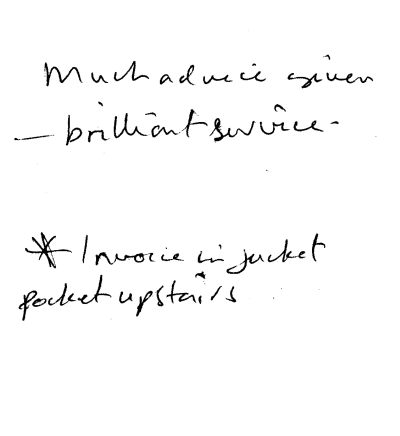 Much advice given
— brilliant service -
* Invoice in jacket
pocket upstairs